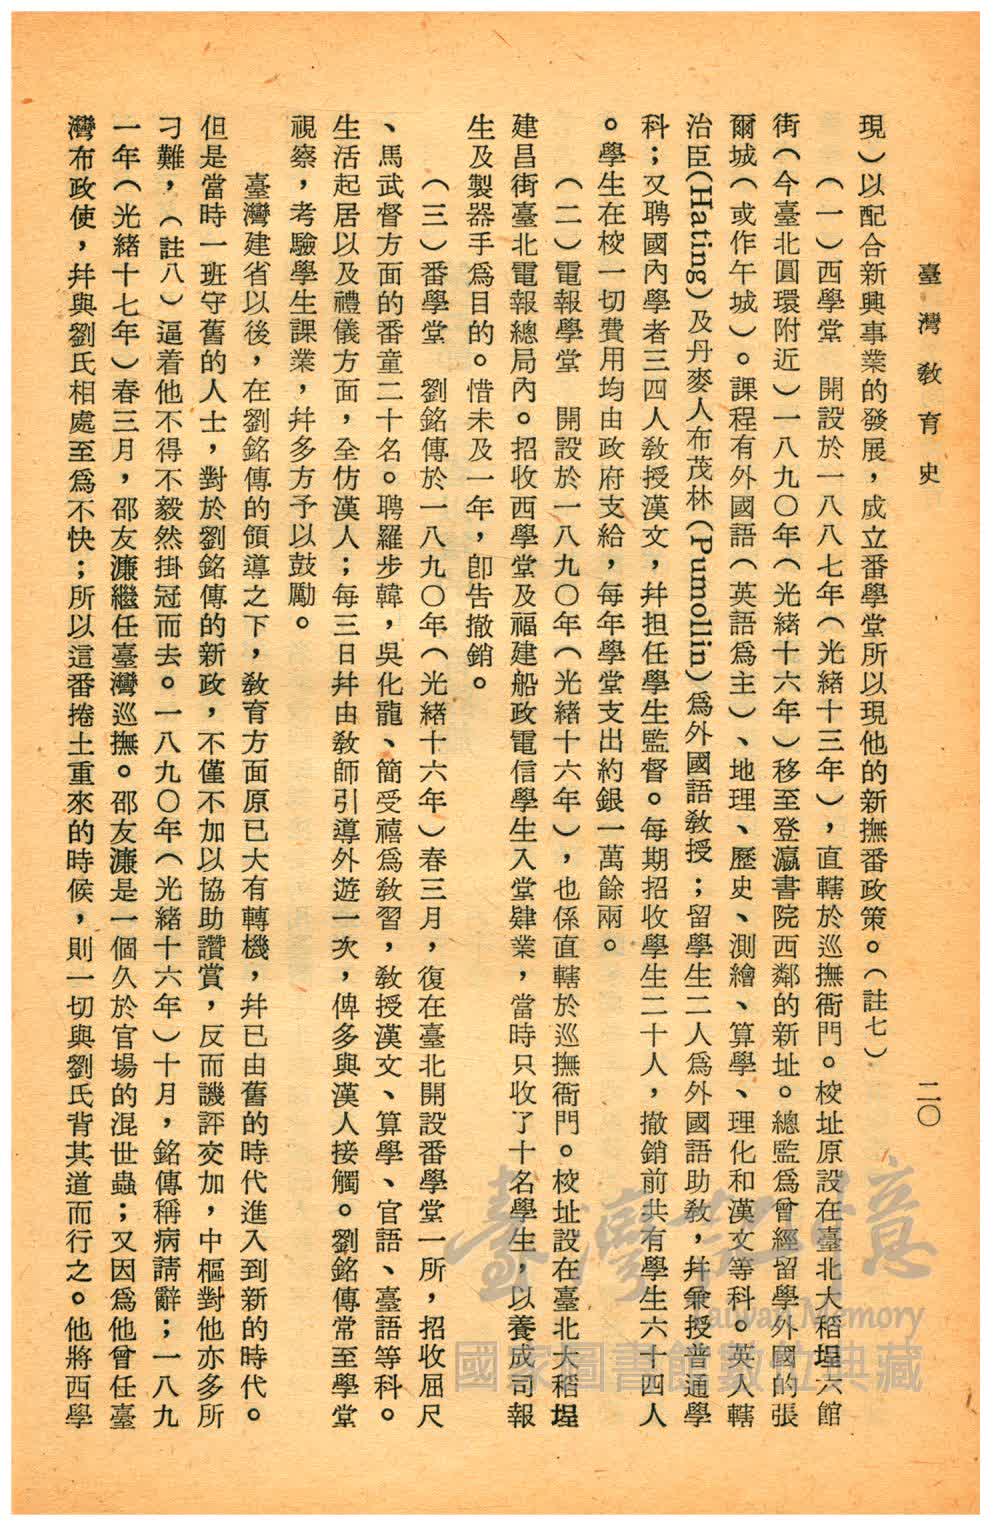 臺灣教育史
二〇
現）以配合新興事業的發展，成立番學堂所以現他的新撫番政策。（註七）
（一）西學堂　開設於一八八七年（光緒十三年），直轄於巡撫衙門。校址原設在臺北大稻埕六館
街（今臺北圓環附近）一八九〇年（光緒十六年）移至登瀛書院西鄰的新址。總監爲曾經留學外國的張
爾城（或作午城）。課程有外國語（英語爲主）、地理、歷史、測繪、算學、理化和漢文等科。英人轄
治臣(Hating)及丹麥人布茂林(Pumollin)爲外國語敎授；留學生二人爲外國語助敎，幷兼授普通學
科；又聘國內學者三四人敎授漢文，幷担任學生監督。每期招收學生二十人，撤銷前共有學生六十四人
。學生在校一切費用均由政府支給，每年學堂支出約銀一萬餘兩。
（二）電報學堂　開設於一八九〇年（光緒十六年），也係直轄於巡撫衙門。校址設在臺北大稻埕
建昌街臺北電報總局內。招收西學堂及福建船政電信學生入堂肄業，當時只收了十名學生，以養成司報
生及製器手爲目的。惜未及一年，卽告撤銷。
（三）番學堂　劉銘傳於一八九〇年（光緒十六年）春三月，復在臺北開設番學堂一所，招收屈尺
、馬武督方面的番童二十名。聘羅步韓，吳化龍、簡受禧爲敎習，敎授漢文、算學、官語、臺語等科。
生活起居以及禮儀方面，全仿漢人；每三日幷由敎師引導外遊一次，俾多與漢人接觸。劉銘傳常至學堂
視察，考驗學生課業，幷多方予以鼓勵。
臺灣建省以後，在劉銘傳的領導之下，敎育方面原已大有轉機，幷已由舊的時代進入到新的時代。
但是當時一班守舊的人士，對於劉銘傳的新政，不僅不加以協助讚賞，反而譏評交加，中樞對他亦多所
刁難，（註八）逼着他不得不毅然掛冠而去。一八九〇年（光緒十六年）十月，銘傳稱病請辭；一八九
一年（光緒十七年）春三月，邵友濂繼任臺灣巡撫。邵友濂是一個久於官場的混世蟲；又因爲他曾任臺
灣布政使，幷與劉氏相處至爲不快；所以這番捲土重來的時候，則一切與劉氏背其道而行之。他將西學
臺灣記憶
Taiwan Memory
國家圖書館數位典藏